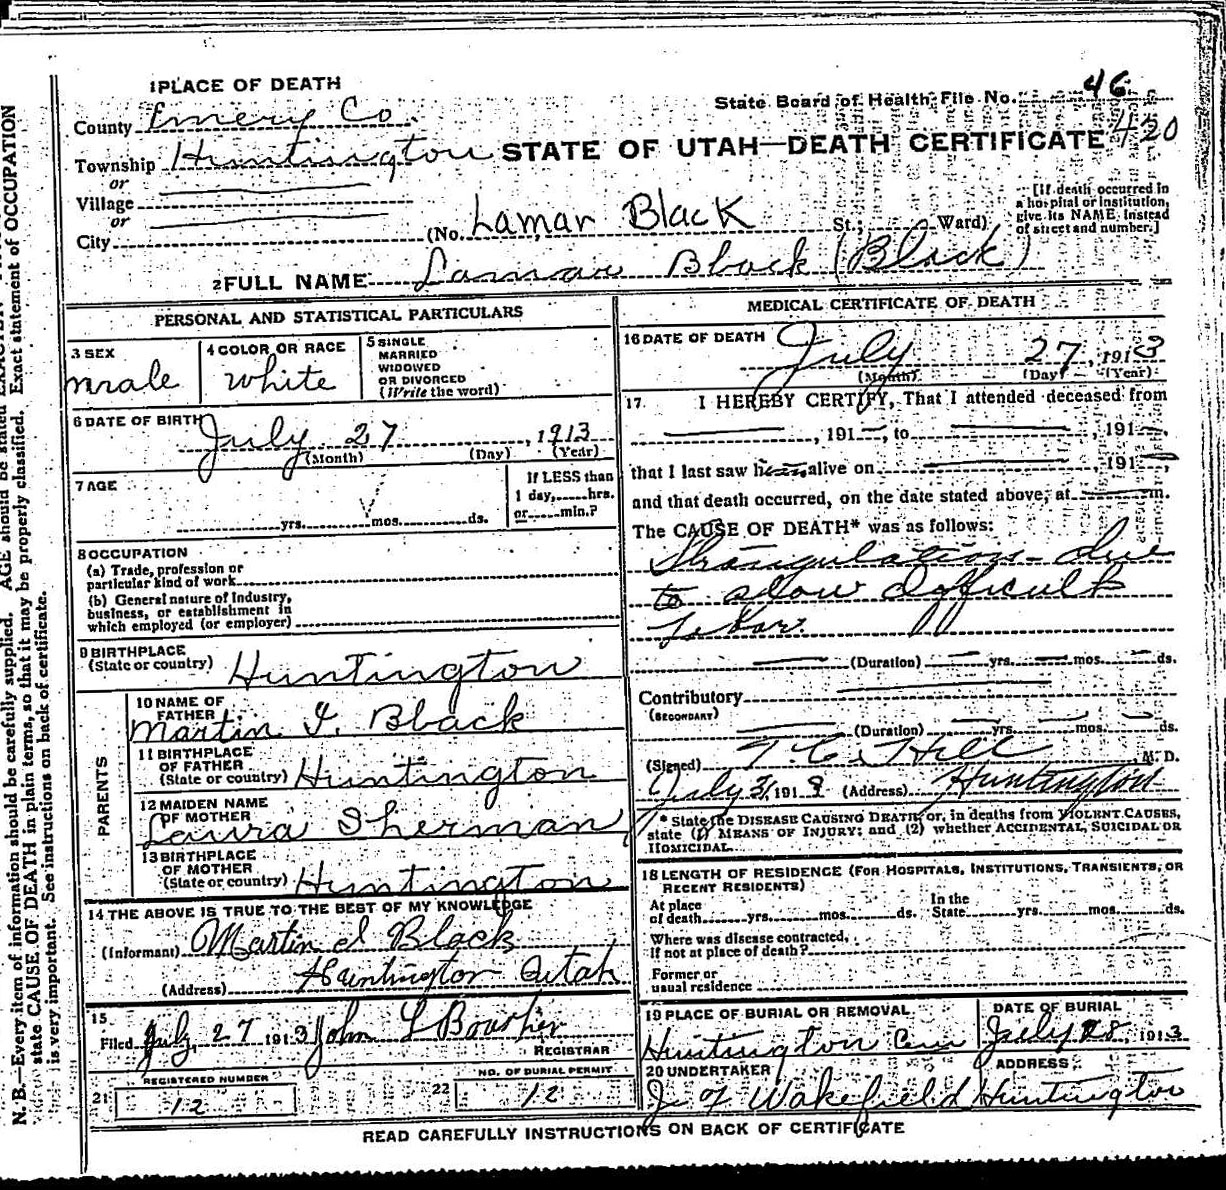 1 PLACE OF DEATH
State Board of Health File No. 46
County Emery Co.
Township Huntington STATE OF UTAH—DEATH CERTIFICATE 420
or
Village
or
City (No. Lamar Black St.; Ward) [If death occurred in a hospital or institution, give its NAME instead of street and number.]
2 FULL NAME Lamar Black (Black)
PERSONAL AND STATISTICAL PARTICULARS
3 SEX male
4 COLOR OR RACE white
5 SINGLE MARRIED WIDOWED OR DIVORCED (Write the word)
6 DATE OF BIRTH July 27, 1913
(Month) (Day) (Year)
7 AGE yrs. mos. ds.
If LESS than 1 day, hrs. or min.?
8 OCCUPATION
(a) Trade, profession or particular kind of work
(b) General nature of industry, business, or establishment in which employed (or employer)
9 BIRTHPLACE (State or country) Huntington
PARENTS
10 NAME OF FATHER Martin I. Black
11 BIRTHPLACE OF FATHER (State or country) Huntington
12 MAIDEN NAME OF MOTHER Laura Sherman
13 BIRTHPLACE OF MOTHER (State or country) Huntington
14 THE ABOVE IS TRUE TO THE BEST OF MY KNOWLEDGE
(Informant) Martin I Black
(Address) Huntington Utah
15 Filed July 27 1913 John L
REGISTRAR
21 REGISTERED NUMBER 12
22 NO. OF BURIAL PERMIT 12
MEDICAL CERTIFICATE OF DEATH
16 DATE OF DEATH July 27, 1913
(Month) (Day) (Year)
17. I HEREBY CERTIFY, That I attended deceased from
, 191 , to , 191 ,
that I last saw h alive on , 191 ,
and that death occurred, on the date stated above, at m.
The CAUSE OF DEATH* was as follows:
Strangulation - due
to slow difficult
Labor.
(Duration) yrs. mos. ds.
Contributory
(SECONDARY)
(Duration) yrs. mos. ds.
(Signed) T. C. Hill, M. D.
July 31, 191 (Address) Huntington
* State the DISEASE CAUSING DEATH, or, in deaths from VIOLENT CAUSES,
state (1) MEANS OF INJURY; and (2) whether ACCIDENTAL, SUICIDAL OR
HOMICIDAL.
18 LENGTH OF RESIDENCE (FOR HOSPITALS, INSTITUTIONS, TRANSIENTS, OR RECENT RESIDENTS)
At place of death yrs. mos. ds. In the State yrs. mos. ds.
Where was disease contracted, if not at place of death?
Former or usual residence
19 PLACE OF BURIAL OR REMOVAL Huntington Cem
DATE OF BURIAL July 28, 1913
20 UNDERTAKER J. F Wakefield
ADDRESS Huntington
READ CAREFULLY INSTRUCTIONS ON BACK OF CERTIFICATE
N. B.—Every item of information should be carefully supplied. AGE should be stated EXACTLY.
state CAUSE OF DEATH in plain terms, so that it may be properly classified. Exact statement of OCCUPATION
is very important. See instructions on back of certificate.